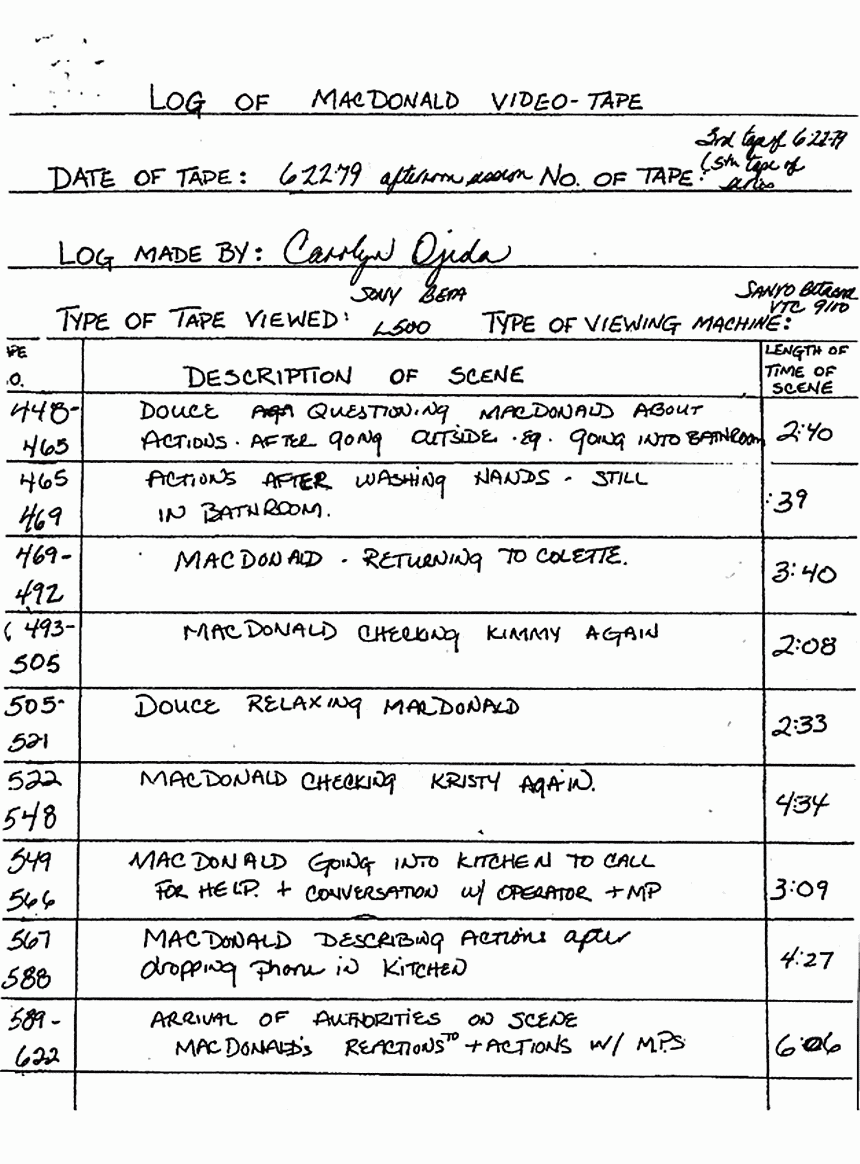 LOG OF MACDONALD VIDEO-TAPE
3rd tape of 6-22-79
DATE OF TAPE: 6-22-79 afternoon session NO. OF TAPE: (5th tape of
series
LOG MADE BY: Carolyn Ojeda
SONY BETA SANYO Betacord
VTC 9100
TYPE OF TAPE VIEWED: L500 TYPE OF VIEWING MACHINE:
PE
O.
DESCRIPTION OF SCENE
LENGTH OF
TIME OF
SCENE
448-
465
DOUCE QUESTIONING MACDONALD ABOUT
ACTIONS. AFTER GOING OUTSIDE. eg. GOING INTO BATHROOM
2:40
465
469
ACTIONS AFTER WASHING HANDS - STILL
IN BATHROOM.
:39
469-
492
MACDONALD - RETURNING TO COLETTE.
3:40
493-
505
MACDONALD CHECKING KIMMY AGAIN
2:08
505-
521
DOUCE RELAXING MACDONALD
2:33
522
548
MACDONALD CHECKING KRISTY AGAIN.
4:34
549
566
MACDONALD GOING INTO KITCHEN TO CALL
FOR HELP. + CONVERSATION w/ OPERATOR + MP
3:09
567
588
MACDONALD DESCRIBING ACTIONS after
dropping phone in KITCHEN
4:27
589-
622
ARRIVAL OF AUTHORITIES ON SCENE
MACDONALD'S REACTIONS TO + ACTIONS W/ M.P.S
6:06